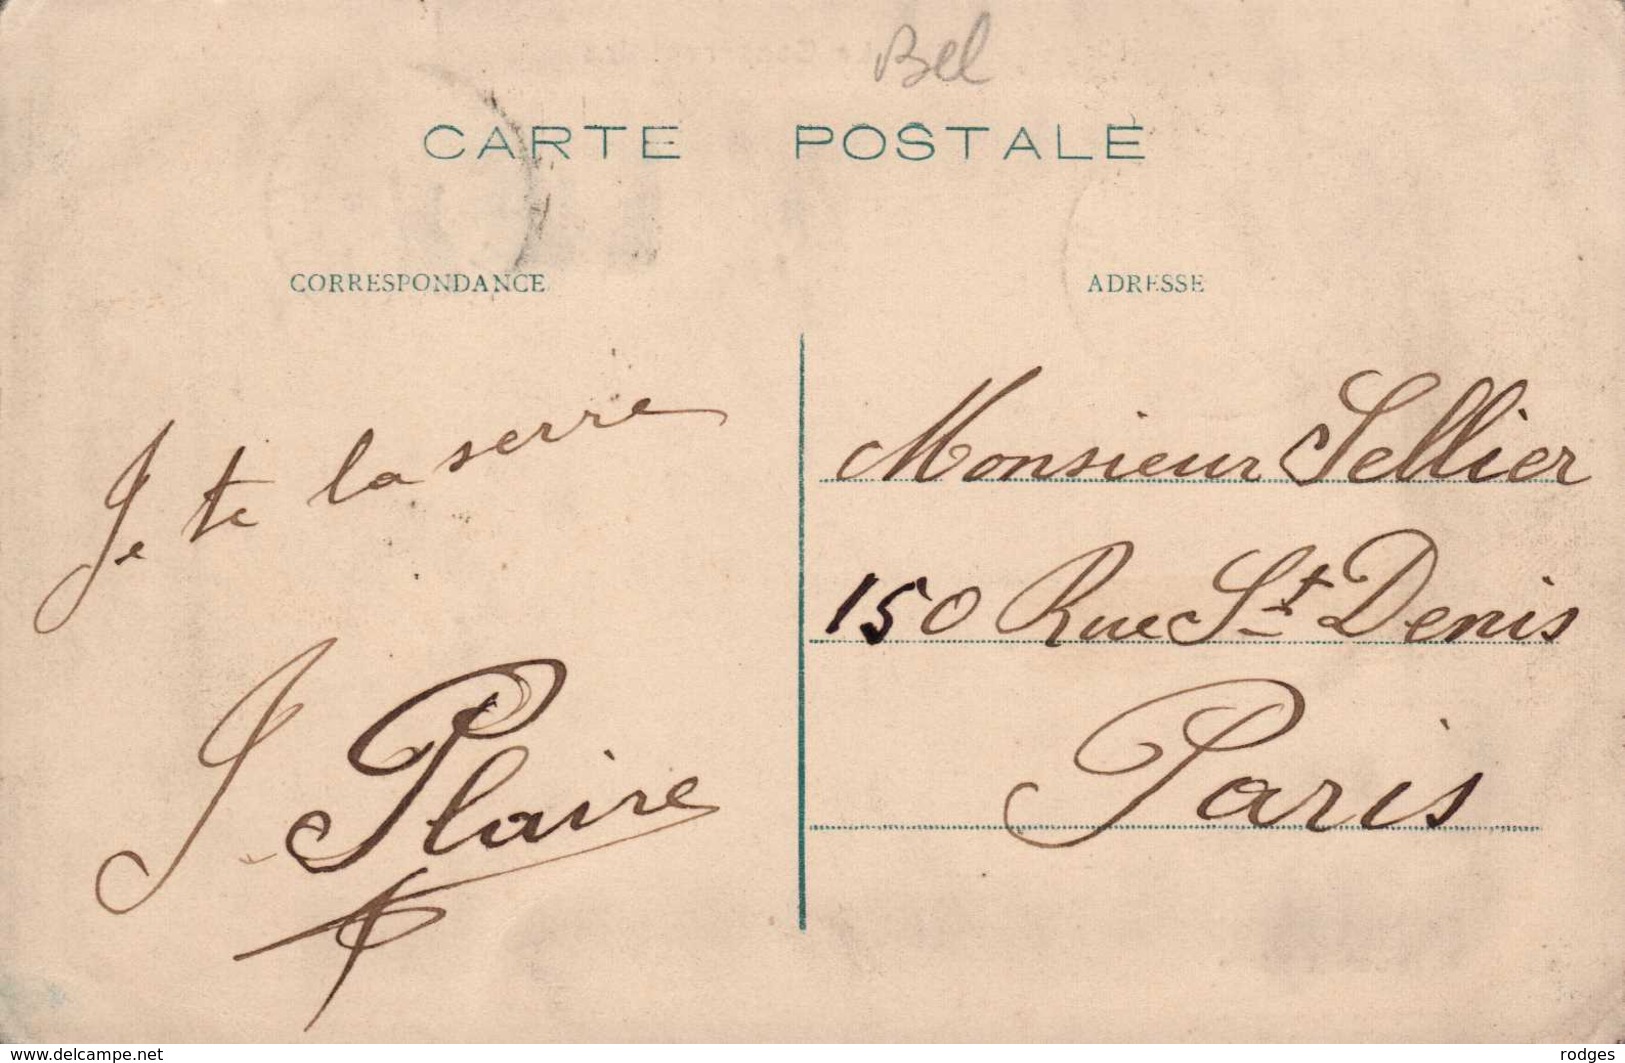 Bel
CARTE POSTALE
CORRESPONDANCE
ADRESSE
Je te la serre
J. Plaire
Monsieur Sellier
150 Rue St Denis
Paris
www.delcampe.net
rodges